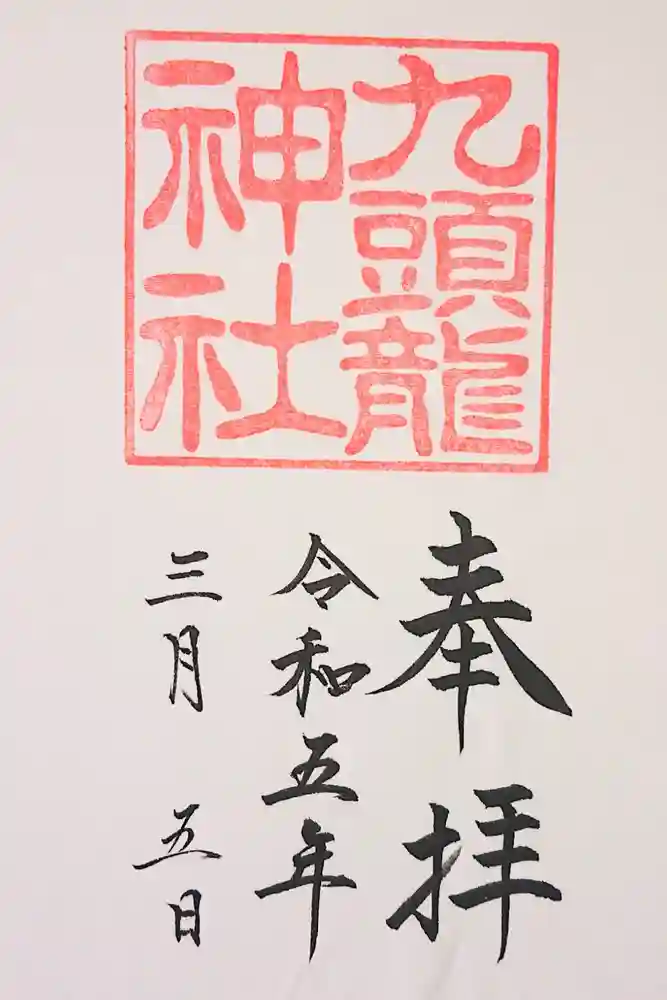 九頭龍
神社
奉拝
令和五年
三月五日